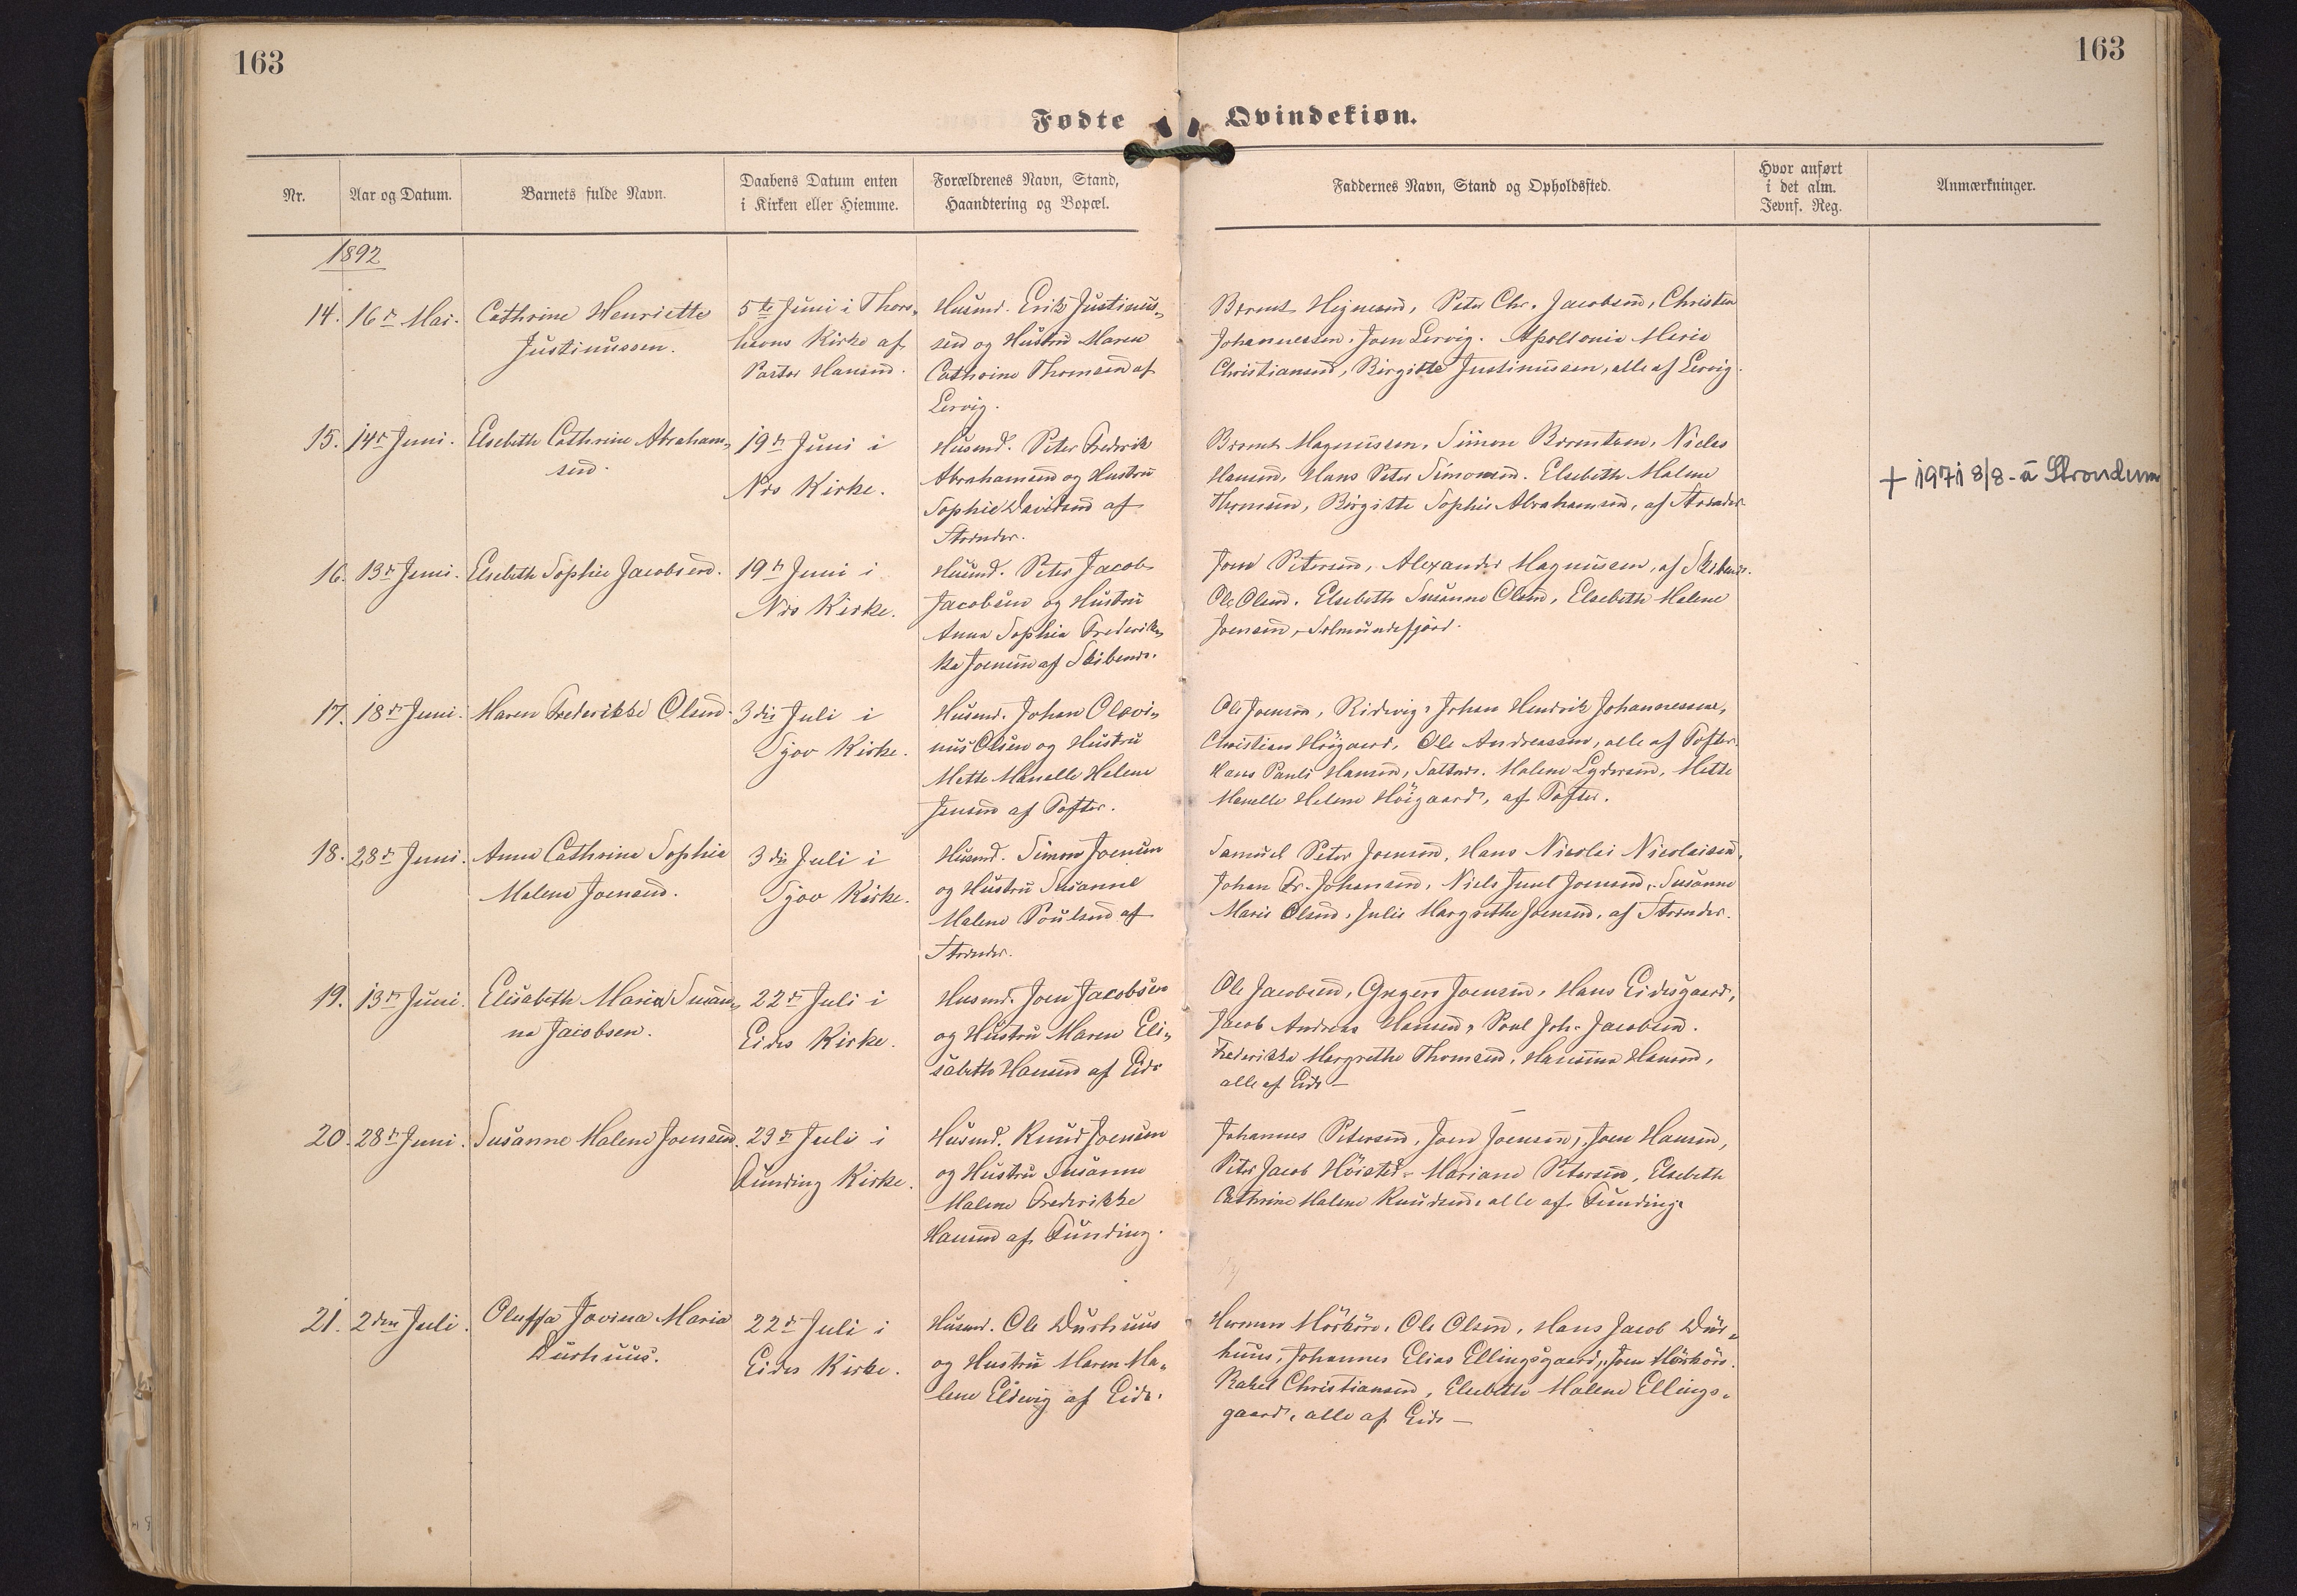 163
163
Fødte Qvindekiøn.
Nr.
Aar og Datum.
Barnets fulde Navn.
Daabens Datum enten
i Kirken eller Hiemme.
Forældrenes Navn, Stand,
Haandtering og Bopæl.
Faddernes Navn, Stand og Opholdssted.
Hvor anført
i det alm.
Jevnf. Reg.
Anmærkninger.
1892
14.
16de Mai.
Cathrine Henriette
Justinussen.
5te Juni i Thors-
havns Kirke af
Pastor Hansen.
Husmd. Erik Justinus-
sen og Hustru Maren
Cathrine Thomsen af
Lervig.
Berent Heinesen, Peter Chr. Jacobsen, Christen
Johannessen, Joen Lervig. Apollonia Maria
Christiansen, Birgitte Justinussen, alle af Lervig.
15.
14de Juni.
Elsebeth Cathrine Abraham-
sen.
19de Juni i
Nes Kirke.
Husmd. Peter Frederik
Abrahamsen og Hustru
Sophie Davidsen af
Strender.
Berent Magnussen, Simon Berentsen, Niclas
Hansen, Hans Peter Simonsen. Elsebeth Malene
Thomsen, Birgitte Sophie Abrahamsen, af Strender.
+ 1971 8/8 - á Strondum
16.
13de Juni.
Elsebeth Sophie Jacobsen.
19de Juni i
Nes Kirke.
Husmd. Peter Jacob
Jacobsen og Hustru
Anna Sophia Frederik-
ka Joensen af Skibenes.
Joen Petersen, Alexander Magnussen, af Skibenes.
Ole Olsen. Elsebeth Susanne Olsen, Elsebeth Malene
Joensen, Selmundefjord.
17.
18de Juni.
Maren Frederikke Olsen.
3die Juli i
Sjov Kirke.
Husmd. Johan Olavi-
nus Olsen og Hustru
Mette Manelle Helene
Jensen af Tofter.
Ole Joensen, Ridevig, Johan Hendrik Johannessen,
Christian Höigaard, Ole Andreassen, alle af Tofter.
Hans Pauli Hansen, Saltnes. Malene Lydersen, Mette
Manelle Helene Höigaard, af Tofter.
18.
28de Juni.
Anna Cathrine Sophie
Malene Joensen.
3die Juli i
Sjov Kirke.
Husmd. Simon Joensen
og Hustru Susanne
Malene Poulsen af
Strender.
Samuel Peter Joensen, Hans Nicolai Nicolaisen,
Johan Fr. Johansen, Niels Juul Joensen, Susanne
Marie Olsen, Julie Margrethe Joensen, af Strender.
19.
13de Juni.
Elisabeth Maria Susan-
na Jacobsen.
22de Juli i
Eides Kirke.
Husmd. Joen Jacobsen
og Hustru Maren Eli-
sabeth Hansen af Eide
Ole Jacobsen, Gregers Joensen, Hans Eidesgaard,
Jacob Andreas Hansen, Poul Joh. Jacobsen.
Frederikke Margrethe Thomsen, Hansina Hansen,
alle af Eide —
20.
28de Juni.
Susanne Malene Joensen.
29de Juli i
Funding Kirke.
Husmd. Knud Joensen
og Hustru Susanne
Malene Frederikke
Hansen af Funding.
Johannes Petersen, Joen Joensen, Joen Hansen,
Peter Jacob Höisted. Mariane Petersen, Elsebeth
Cathrine Malene Knudsen, alle af Funding.
21.
2den Juli.
Oluffa Jovina Maria
Durhuus.
22de Juli i
Eides Kirke.
Husmd. Ole Durhuus
og Hustru Maren Ma-
lene Eldevig af Eide.
Herman Mörköre, Ole Olsen, Hans Jacob Dur-
huus, Johannes Elias Ellingsgaard, Joen Mörköre.
Rakel Christiansen, Elsebeth Malene Ellings-
gaard, alle af Eide —